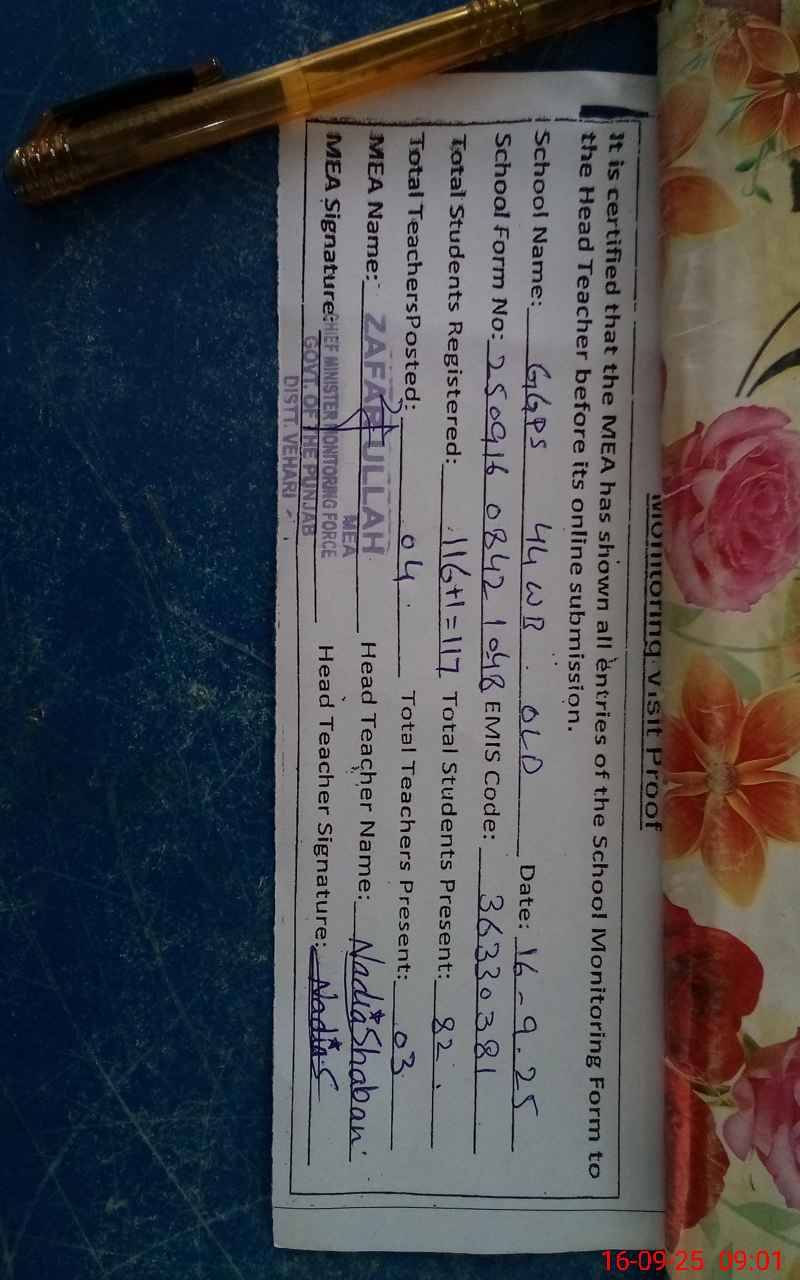 Monitoring Visit Proof
It is certified that the MEA has shown all entries of the School Monitoring Form to
the Head Teacher before its online submission.
School Name: GGPS 44 WB OLD Date: 16-9-25
School Form No: 250916 0842 1048 EMIS Code: 36330381
Total Students Registered: 116+1=117 Total Students Present: 82
Total TeachersPosted: 04 Total Teachers Present: 03
MEA Name: ZAFAR ULLAH Head Teacher Name: Nadia Shaban
MEA
MEA Signature: CHIEF MINISTER MONITORING FORCE Head Teacher Signature: Nadia.S
GOVT. OF THE PUNJAB
DISTT. VEHARI
16-09-25 09:01